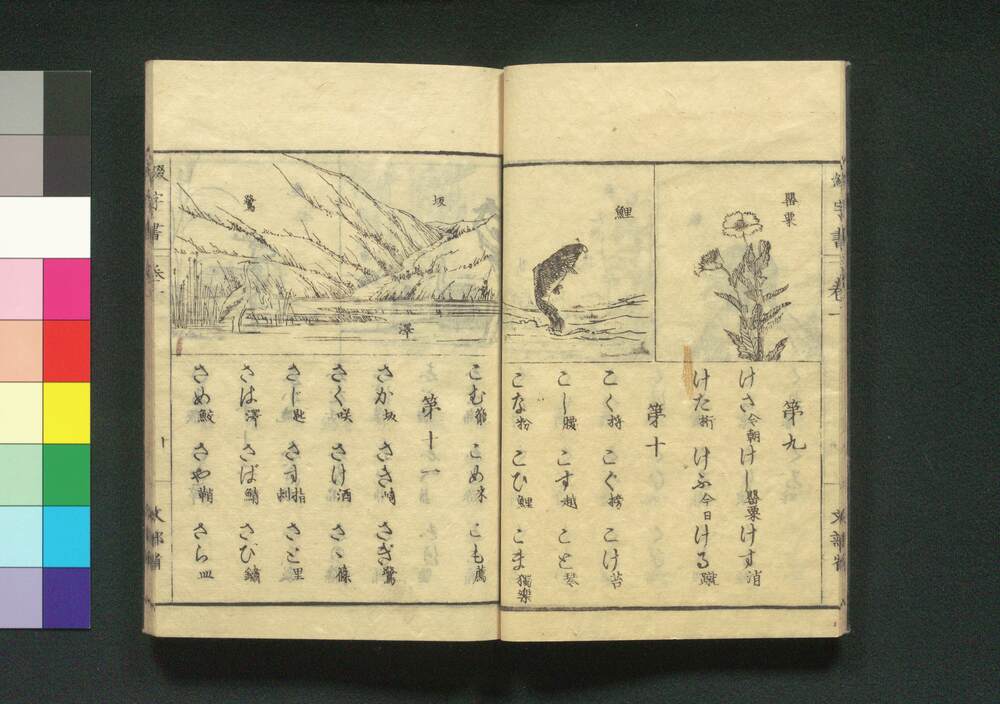 罌粟
鯉
第九
けさ今朝 けし罌粟 けす消
けた桁 けふ今日 ける蹴
第十
こく扱 こぐ搒 こけ苔
こし腰 こす越 こと琴
こな粉 こひ鯉 こま獨樂
文部省
坂
鷺
澤
こむ籠 こめ米 こも薦
第十一
さか坂 さき崎 さぎ鷺
さく咲 さけ酒 さゝ篠
さじ匙 さす指刺 さと里
さは澤 さば鯖 さび鏽
さめ鮫 さや鞘 さら皿
綴字書 卷一
十
文部省